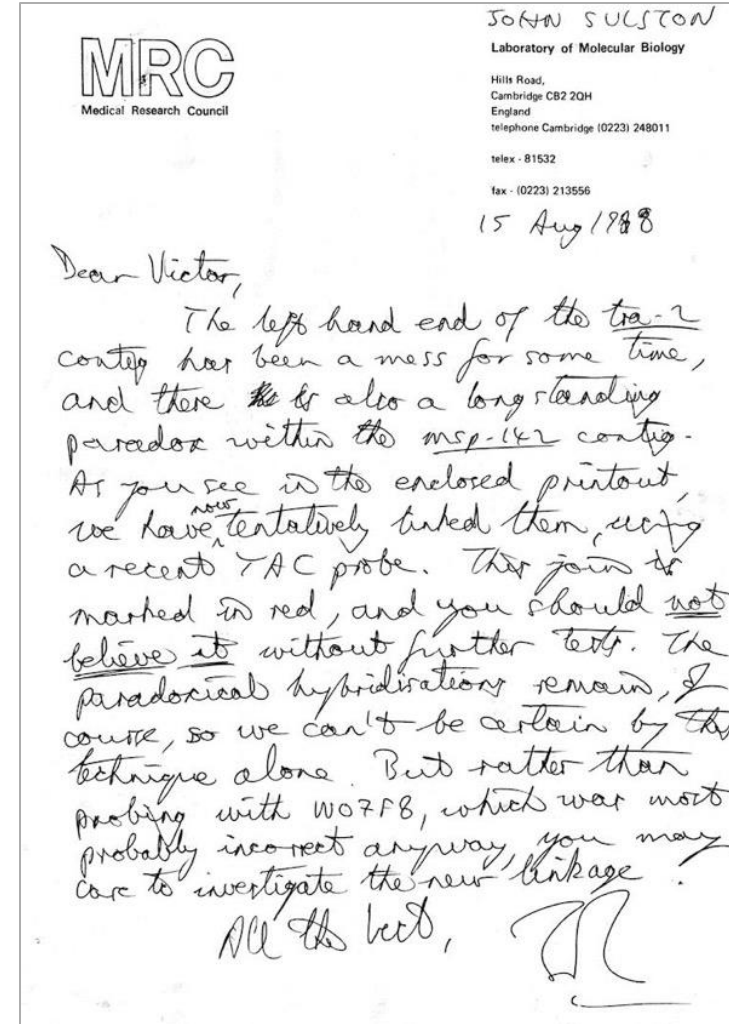 JOHN SULSTON
MRC
Medical Research Council
Laboratory of Molecular Biology
Hills Road,
Cambridge CB2 2QH
England
telephone Cambridge (0223) 248011
telex - 81532
fax - (0223) 213556
15 Aug 1988
Dear Victor,
The left hand end of the tra-2
contig has been a mess for some time,
and there is also a longstanding
paradox within the msp-142 contig.
As you see in the enclosed printout,
we have now tentatively linked them, using
a recent YAC probe. This join is
marked in red, and you should not
believe it without further tests. The
paradoxical hybridisations remain, of
course, so we can't be certain by this
technique alone. But rather than
probing with W07F8, which was most
probably incorrect anyway, you may
care to investigate the new linkage.
All the best,